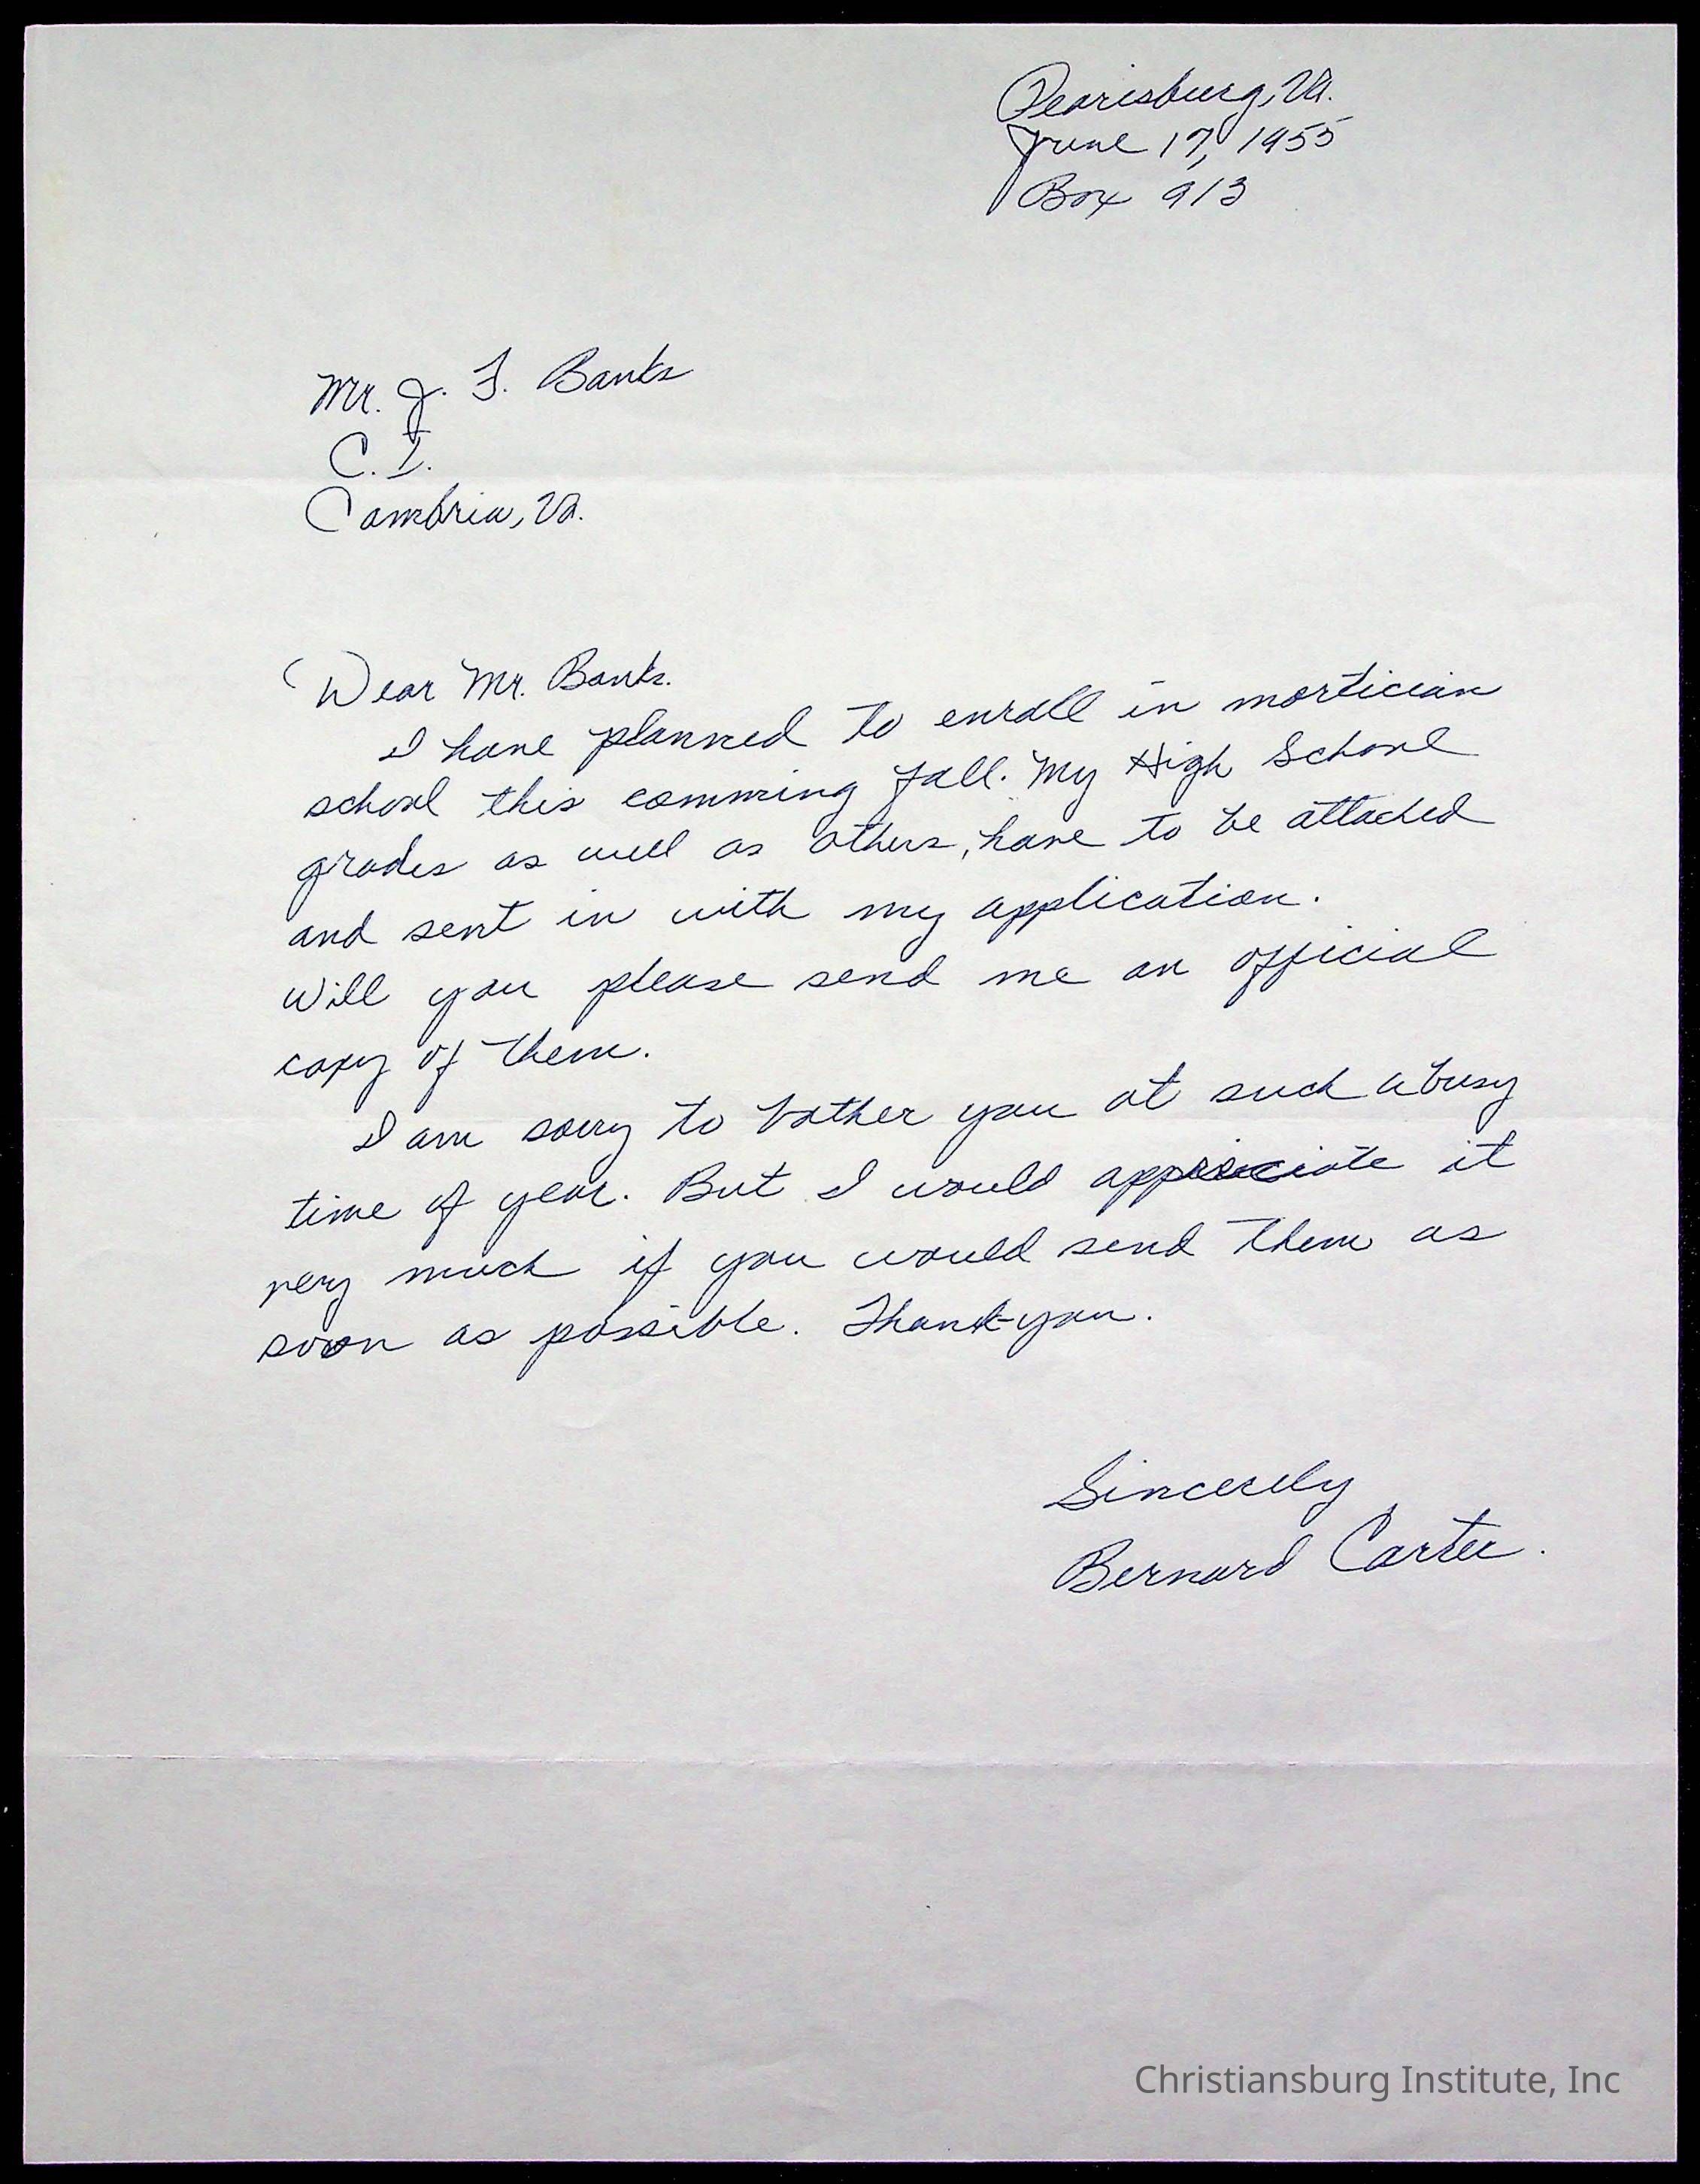 Pearisburg, Va.
June 17, 1955
Box 913
Mr. J. F. Banks
C. I.
Cambria, Va.
Dear Mr. Banks.
I have planned to enroll in mortician
school this comming fall. My High School
grades as well as others, have to be attached
and sent in with my application.
Will you please send me an official
copy of them.
I am sorry to bother you at such a busy
time of year. But I would appreciate it
very much if you would send them as
soon as possible. Thank-you.
Sincerely
Bernard Carter.
Christiansburg Institute, Inc